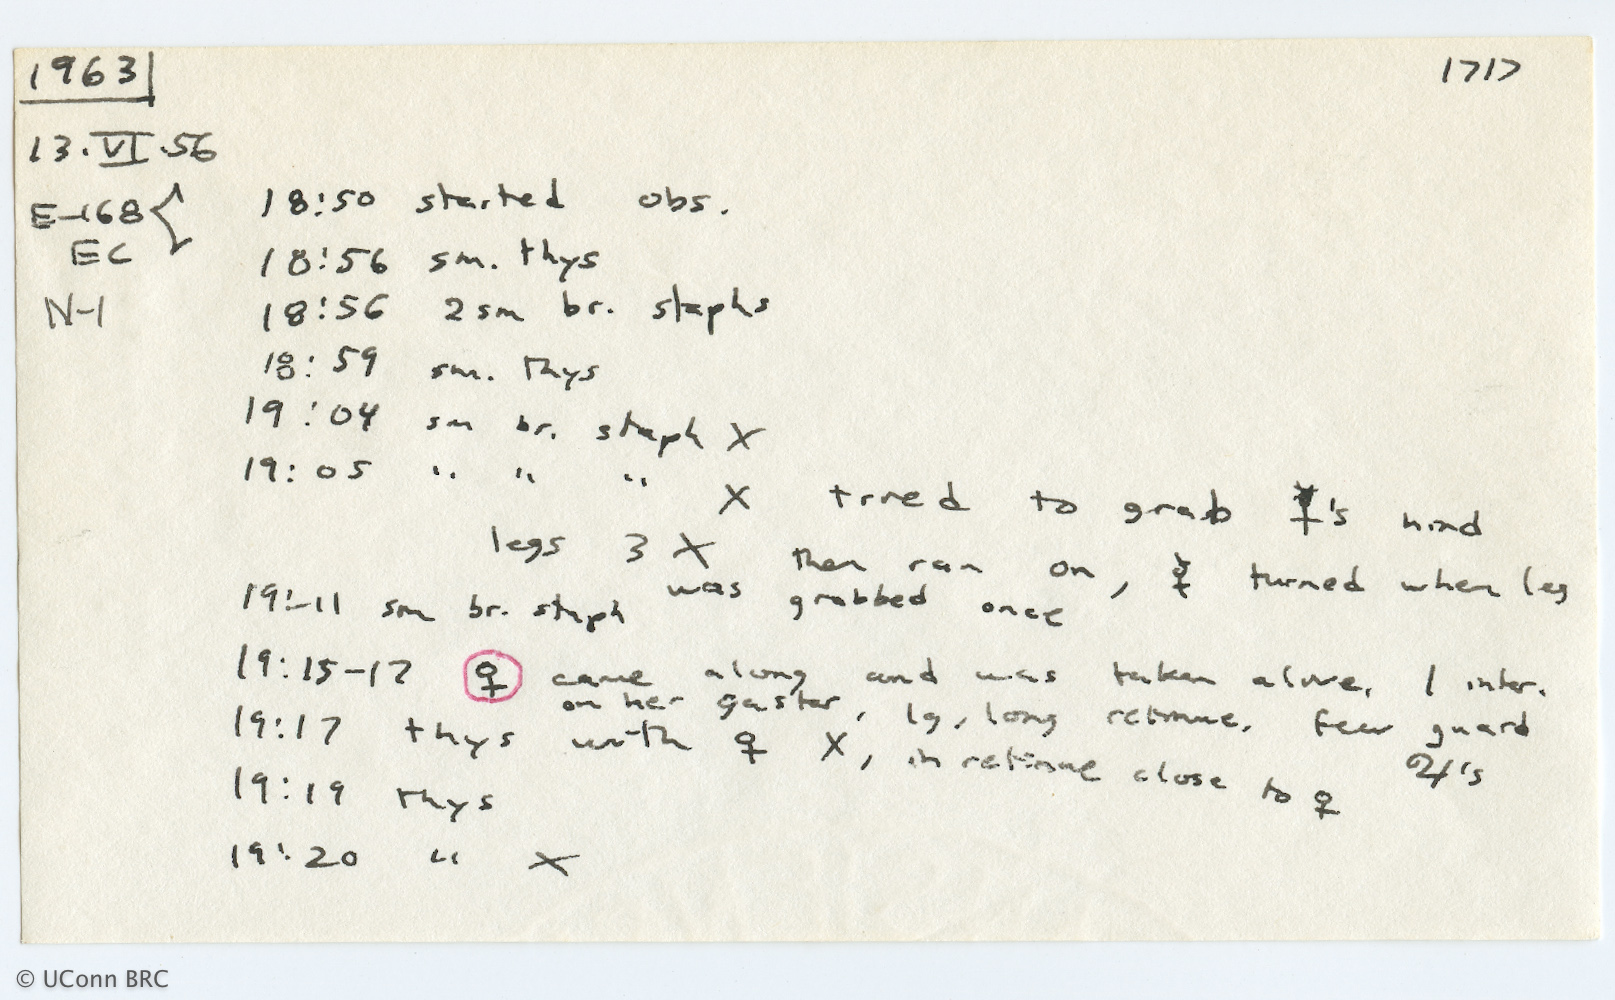 1963 1717
13.VI.56
E-168 18:50 started obs.
EC 18:56 sm. thys
N-1 18:56 2 sm br. staphs
18:59 sm. thys
19:04 sm br. staph X
19:05 " " " X tried to grab ☿'s hind
legs 3 X then ran on, ☿ turned when leg
was grabbed once
19:11 sm br. staph
19:15-17 ♀ came along and was taken alive, 1 inter.
on her gaster, lg, long retinue. Few guard
♃'s
19:17 thys with ♀ X, in retinue close to ♀
19:19 thys
19:20 " X
© UConn BRC